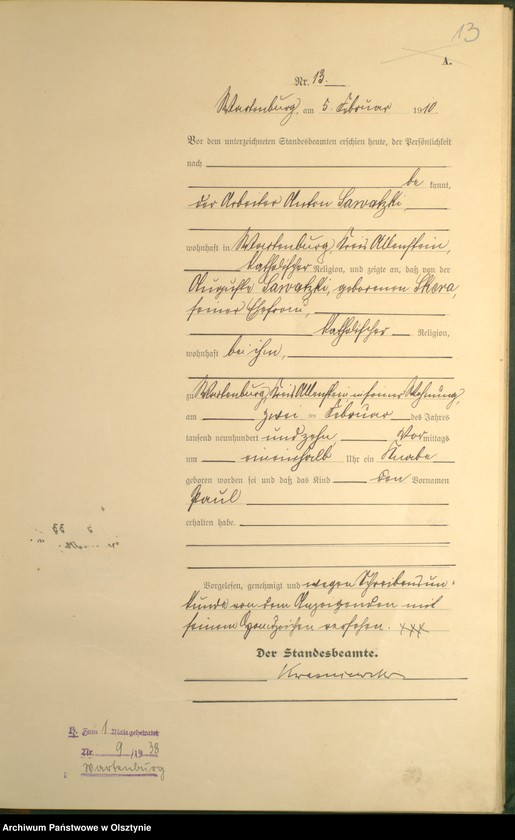 13
A.
Nr. 13.
Wartenburg, am 5. Februar 1910.
Vor dem unterzeichneten Standesbeamten erschien heute, der Persönlichkeit
nach
be kannt,
der Arbeiter Anton Sawatzki,
wohnhaft in Wartenburg, Kreis Allenstein,
katholischer Religion, und zeigte an, daß von der
Auguste Sawatzki, geborenen Skera,
seiner Ehefrau,
katholischer Religion,
wohnhaft bei ihm,
zu Wartenburg, Kreis Allenstein in seiner Wohnung,
am zwei ten Februar des Jahres
tausend neunhundert und zehn Vor mittags
um eineinhalb Uhr ein Knabe
geboren worden sei und daß das Kind den Vornamen
Paul
erhalten habe.
Vorgelesen, genehmigt und wegen Schreibensun-
kunde von dem Anzeigenden mit
seinem Handzeichen versehen. xxx
Der Standesbeamte.
Zum 1 Mal geheiratet
Nr. 9/1938
Wartenburg
Archiwum Państwowe w Olsztynie